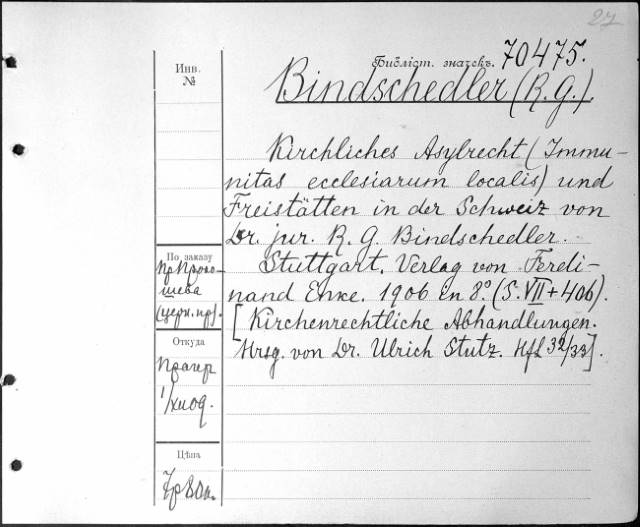 27
Библіот. значекъ. 70475.
Инв.
№
Bindschedler (R. G.)
Kirchliches Asylrecht (Immu-
nitas ecclesiarum localis) und
Freistätten in der Schweiz von
Dr. jur. R. G. Bindschedler.
Stuttgart. Verlag von Ferdi-
nand Enke. 1906 in 8º. (S. VII + 406).
[Kirchenrechtliche Abhandlungen.
Hrsg. von Dr. Ulrich Stutz. Hft 32/33].
По заказу
пр Проко-
шева
(церк. пр).
Откуда
Прагер
Цѣна